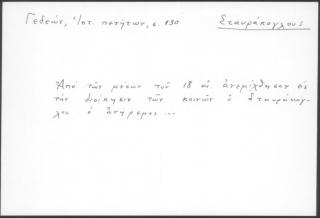 Γεδεών, Ἱστ. πενήτων, σ. 130
Σταυράκογλους
Ἀπό τῶν μέσων τοῦ 18 αἰ. ἀνεμίχθησαν εἰς
τήν διοίκησιν τῶν κοινῶν ὁ Σταυράκο-
γλου ὁ